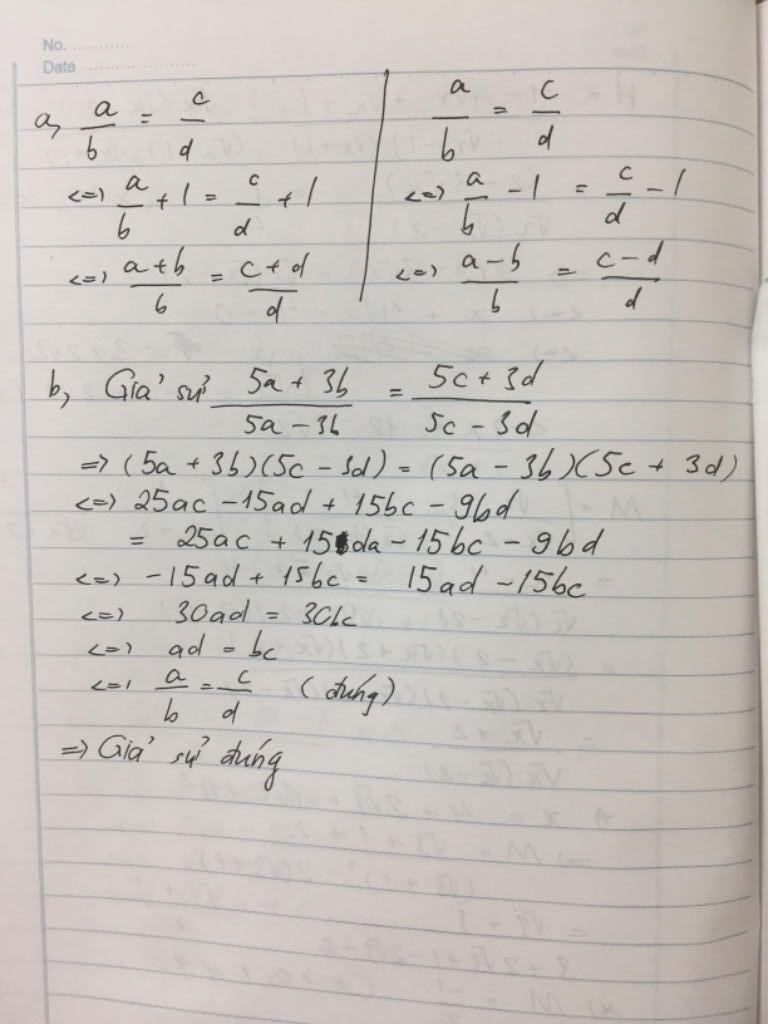 No. ............
Date ........................
a, a/b = c/d
<=> a/b + 1 = c/d + 1
<=> (a + b)/b = (c + d)/d
a/b = c/d
<=> a/b - 1 = c/d - 1
<=> (a - b)/b = (c - d)/d
b, Giả sử (5a + 3b)/(5a - 3b) = (5c + 3d)/(5c - 3d)
=> (5a + 3b)(5c - 3d) = (5a - 3b)(5c + 3d)
<=> 25ac - 15ad + 15bc - 9bd
= 25ac + 15da - 15bc - 9bd
<=> -15ad + 15bc = 15ad - 15bc
<=> 30ad = 30bc
<=> ad = bc
<=> a/b = c/d (đúng)
=> Giả sử đúng